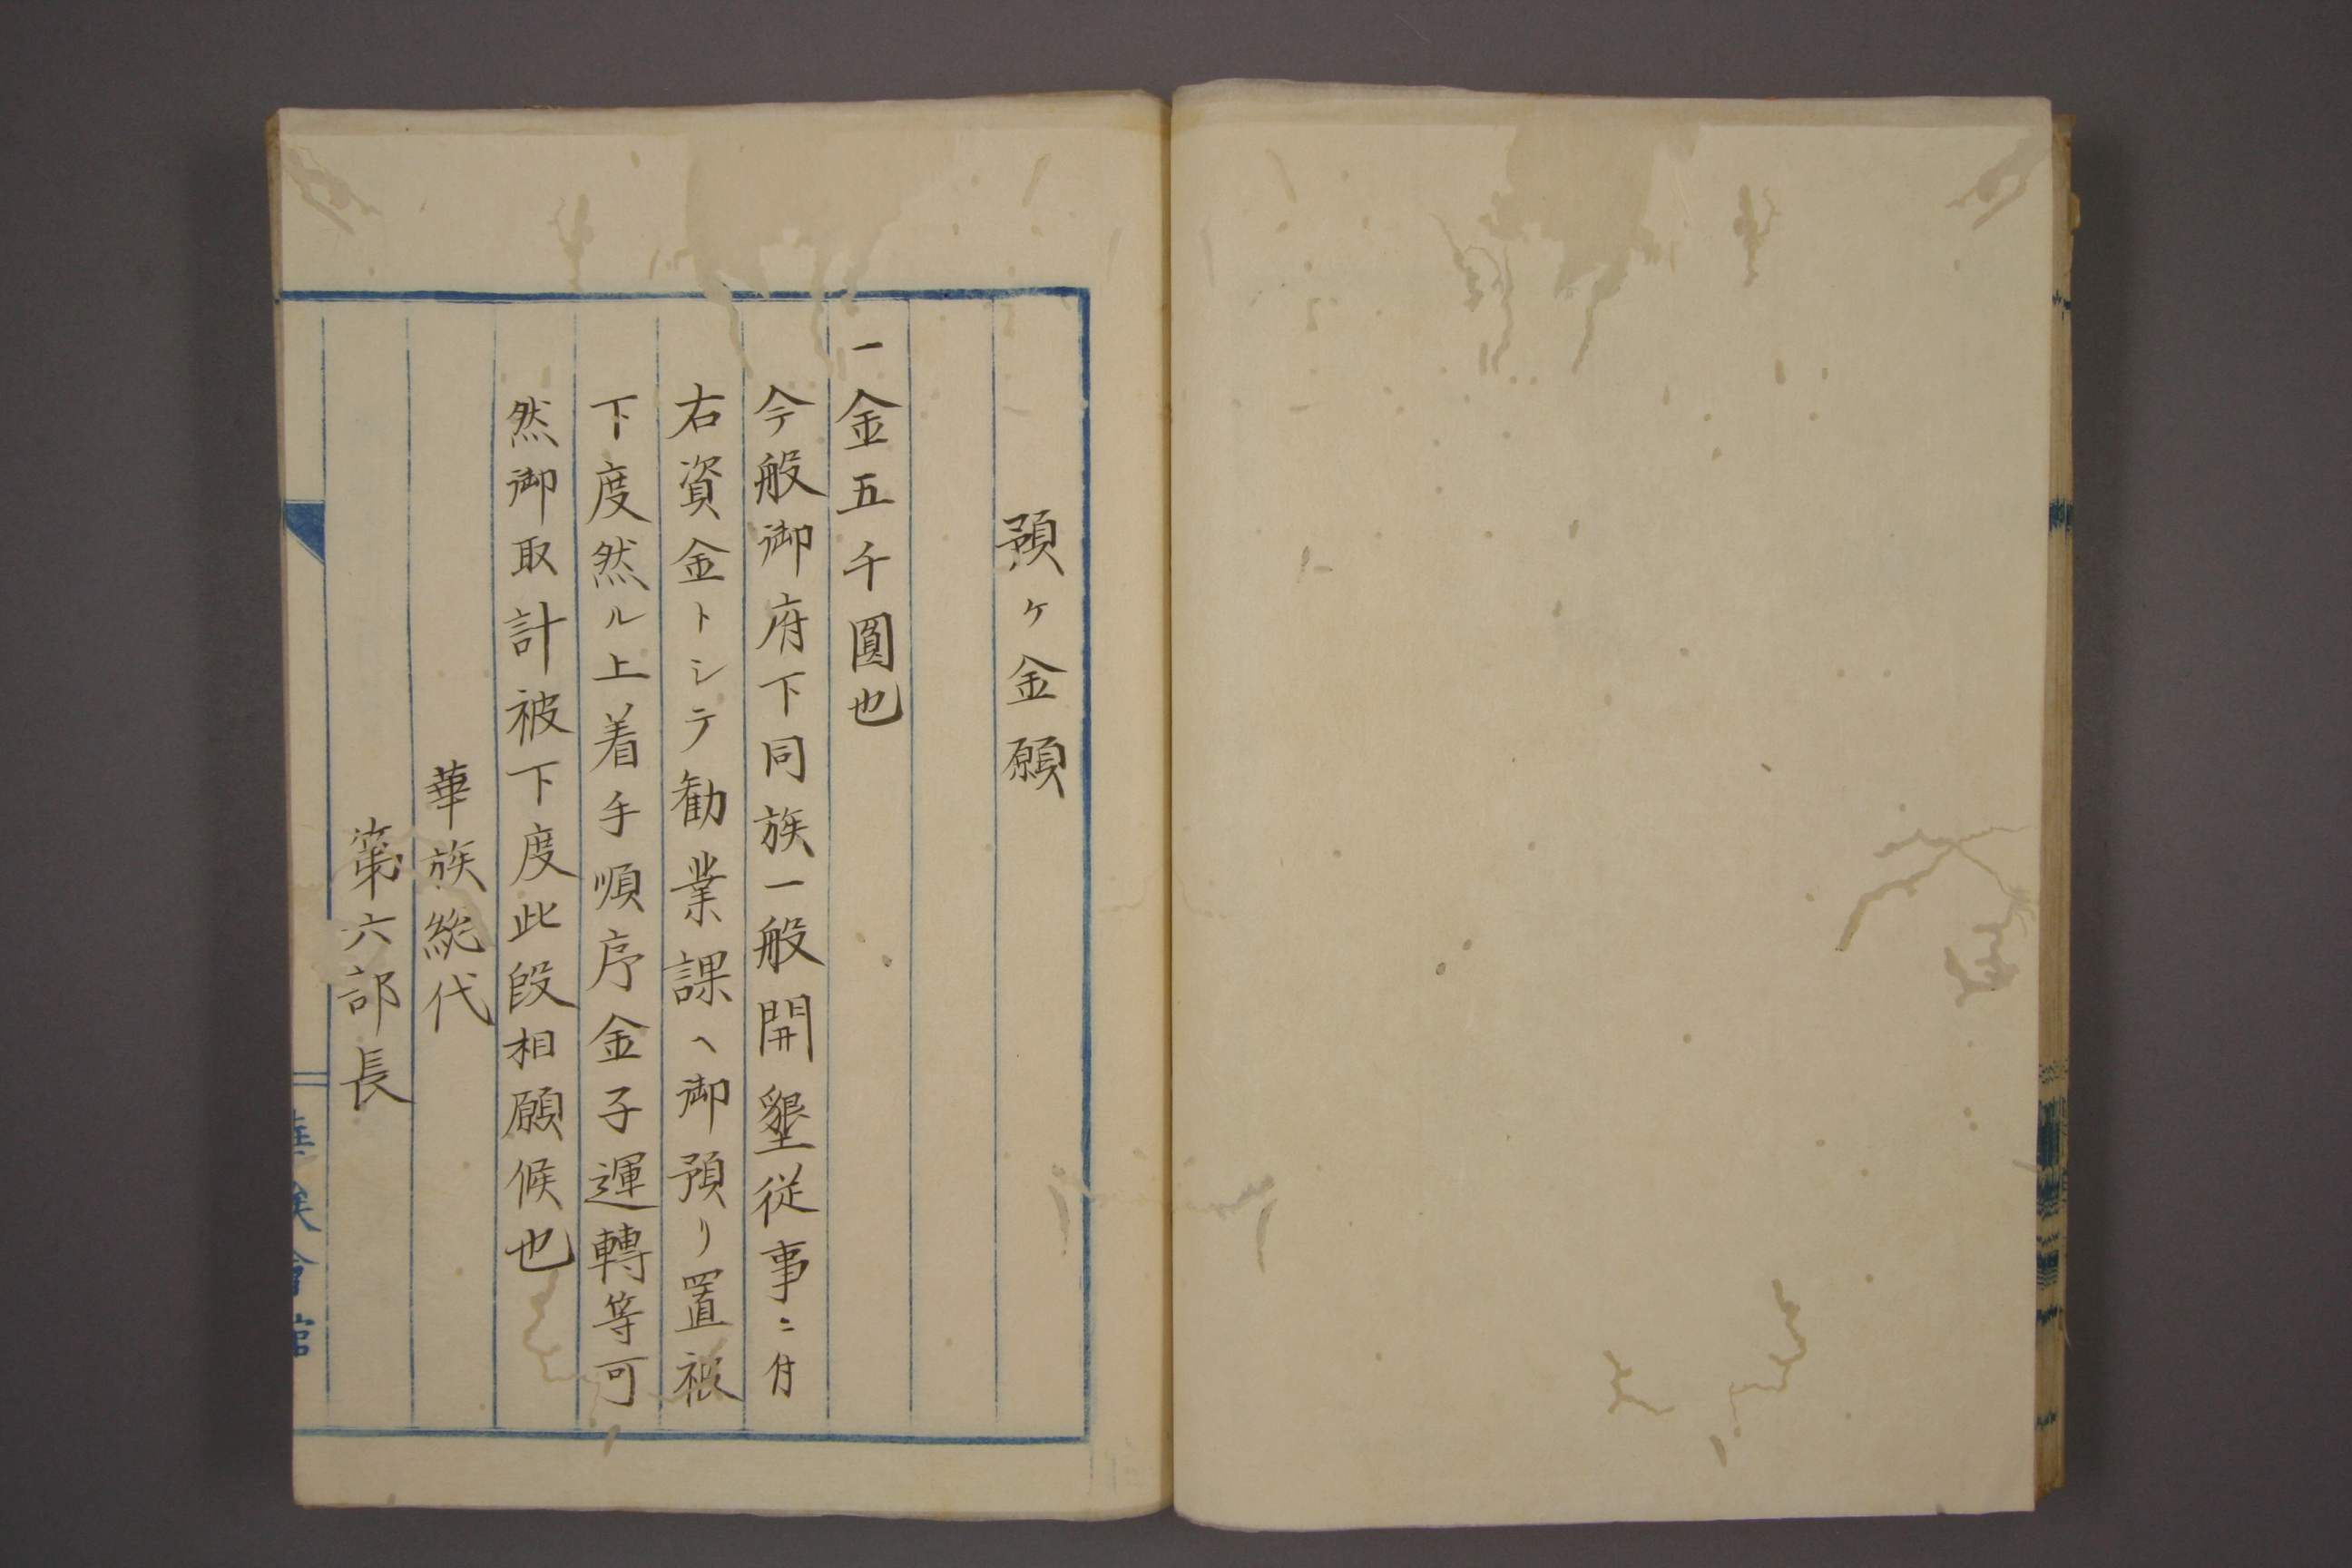 預ケ金願
一金五千圓也
今般御府下同族一般開墾従事ニ付
右資金トシテ勧業課ヘ御預リ置被
下度然ル上着手順序金子運轉等可
然御取計被下度此段相願候也
華族総代
第六部長
華族會館